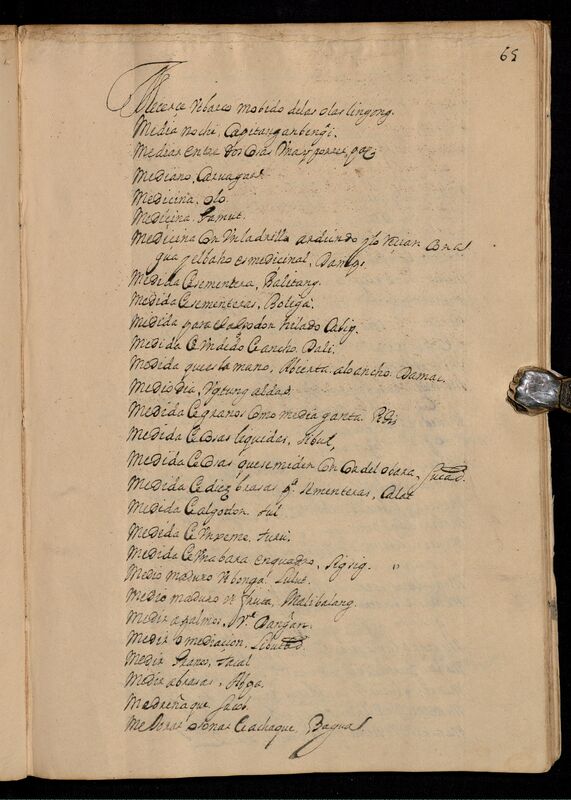 65
Mecerce el barco mobido de las olas lingong.
Media nochi, Capitangan bengi.
Mediar entre dos cosas
Mediano, Caruagan
Medicina. olo.
Medicina. Tamut.
Medicina Con Un ladrillo ardiendo q lo Con al
gua y el baho es medicinal, Dang
Medida Ce sementera, Balitang.
Medida Ce sementeras, Bolega.
Medida para el algodon hilado Cabig.
Medida Ce Un dedo Ce ancho. Dali.
Medida que es la mano, Abierta a lo ancho. Damac.
Medio dia, Ugtung aldao.
Medida Ce granos Como media ganta.
Medida Ce Cosas liquidas, Sibul,
Medida Ce Cosas que se miden Con Cordel o bara, Sucad.
Medida Ce diez brasas pa. sementeras, Calat
Medida Ce algodon. sul
Medida Ce Un peme. turu.
Medida Ce Una bara en quadro, Sigsig.
Medio maduro Ce bonga. Lulut.
Medio maduro Malibalang.
Medir a palmos, Dangan.
Medir o mediacion, Sibucad.
Medir granos, tacal
Medir a brasas, Apga.
Medreñaque, Sacob.
Me Cachaque, Bagual.